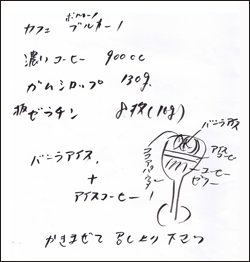 カフェ ブルボー!
濃いコーヒー 900cc
ガムシロップ 130g.
板ゼラチン 8枚
バニラアイス
+
アイスコーヒー
バニラアイス
アイスコーヒー
コーヒーゼリー
かきまぜて 召し上り 下さい